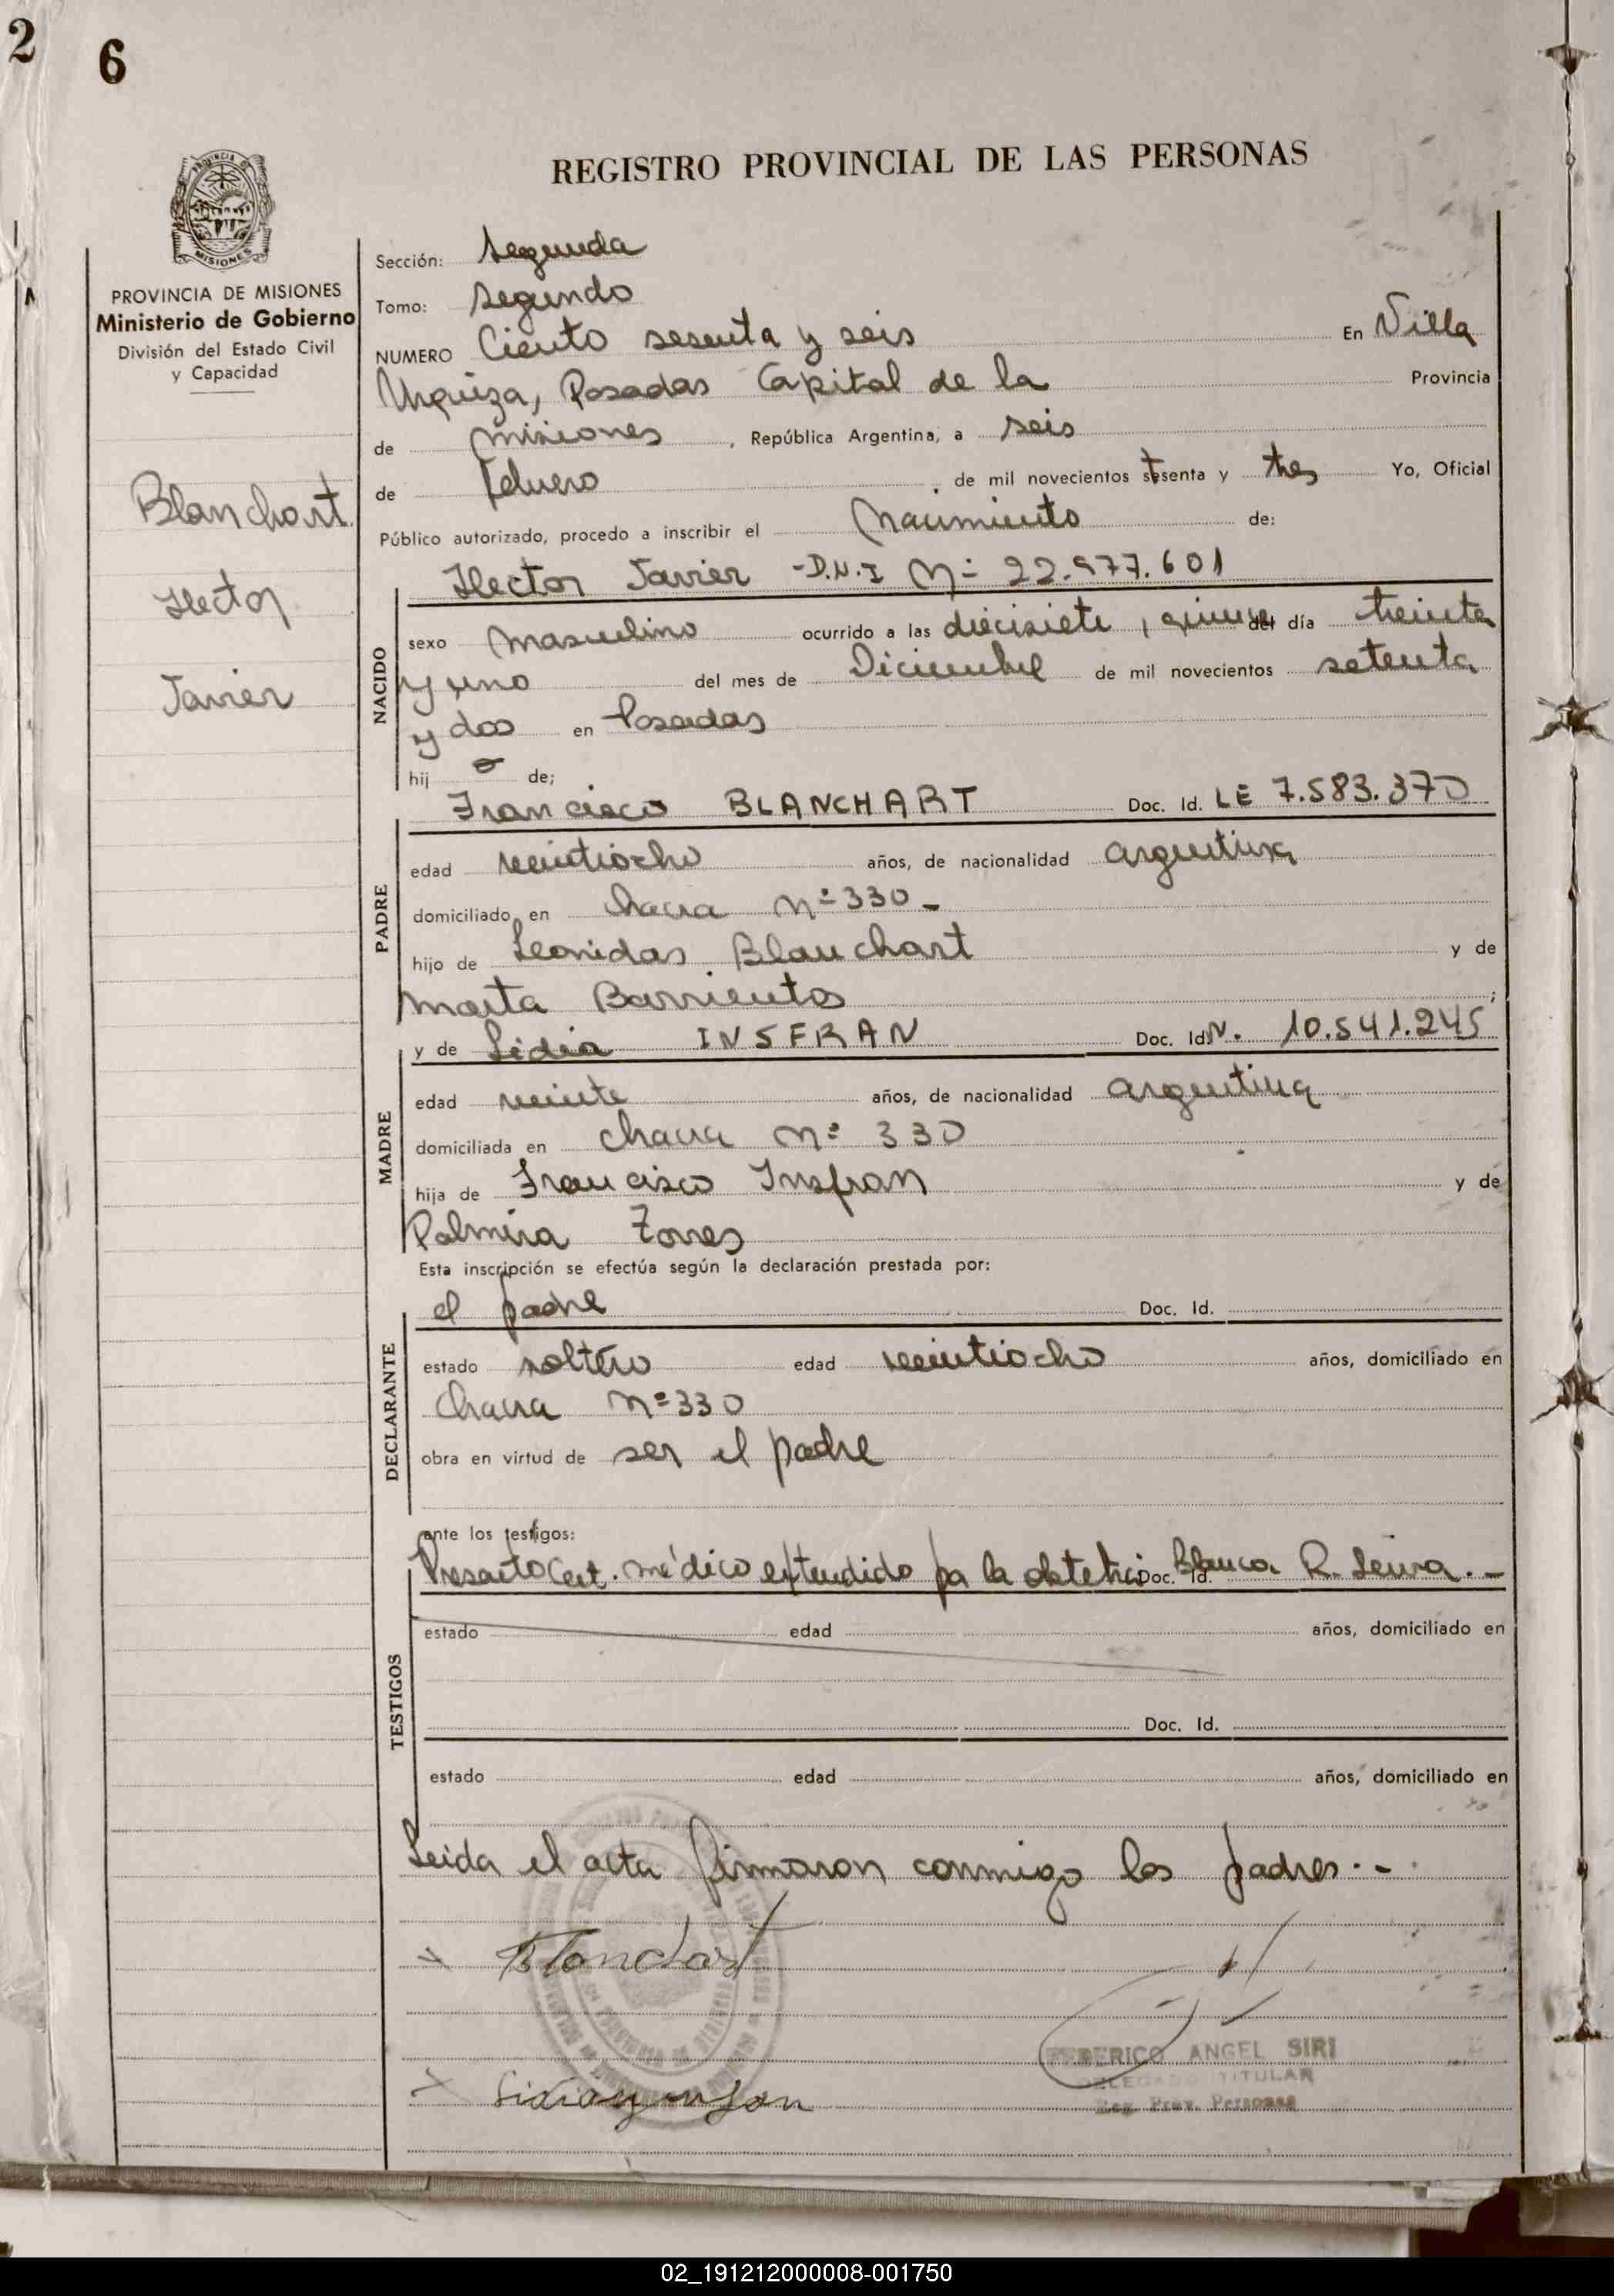 2 6
REGISTRO PROVINCIAL DE LAS PERSONAS
PROVINCIA DE MISIONES
MISIONES
PROVINCIA DE MISIONES
Ministerio de Gobierno
División del Estado Civil
y Capacidad
Blanchart
Hector
Javier
Sección: Segunda
Tomo: Segundo
NUMERO Ciento sesenta y seis En Villa
Urquiza, Posadas Capital de la Provincia
de misiones , República Argentina, a seis
de febrero de mil novecientos setenta y tres Yo, Oficial
Público autorizado, procedo a inscribir el Nacimiento de:
Hector Javier -D.N.I Nº 22.977.601
NACIDO
sexo masculino ocurrido a las diecisiete, quince del día treinta
y uno del mes de Diciembre de mil novecientos setenta
y dos en Posadas
hij o de;
Francisco BLANCHART Doc. Id. LE 7.583.370
PADRE
edad veintiocho años, de nacionalidad argentina
domiciliado en chacra Nº 330 -
hijo de Leonidas Blanchart y de
Marta Barrientos ;
y de Lidia INSFRAN Doc. Id N. 10.541.245
MADRE
edad veinte años, de nacionalidad argentina
domiciliada en chacra Nº 330
hija de Francisco Insfran y de
Palmira Torres
Esta inscripción se efectúa según la declaración prestada por:
el padre Doc. Id.
DECLARANTE
estado soltero edad veintiocho años, domiciliado en
Chacra Nº 330
obra en virtud de ser el padre
ante los testigos:
Cert. médico extendido pa la obtetri Doc. Id. Blanca R. .-
TESTIGOS
estado edad años, domiciliado en
Doc. Id.
estado edad años, domiciliado en
Leida el acta firmaron conmigo los padres.-
Blanchart
FEDERICO ANGEL SIRI
DELEGADO TITULAR
Reg. Prov. Personas
02_191212000008-001750